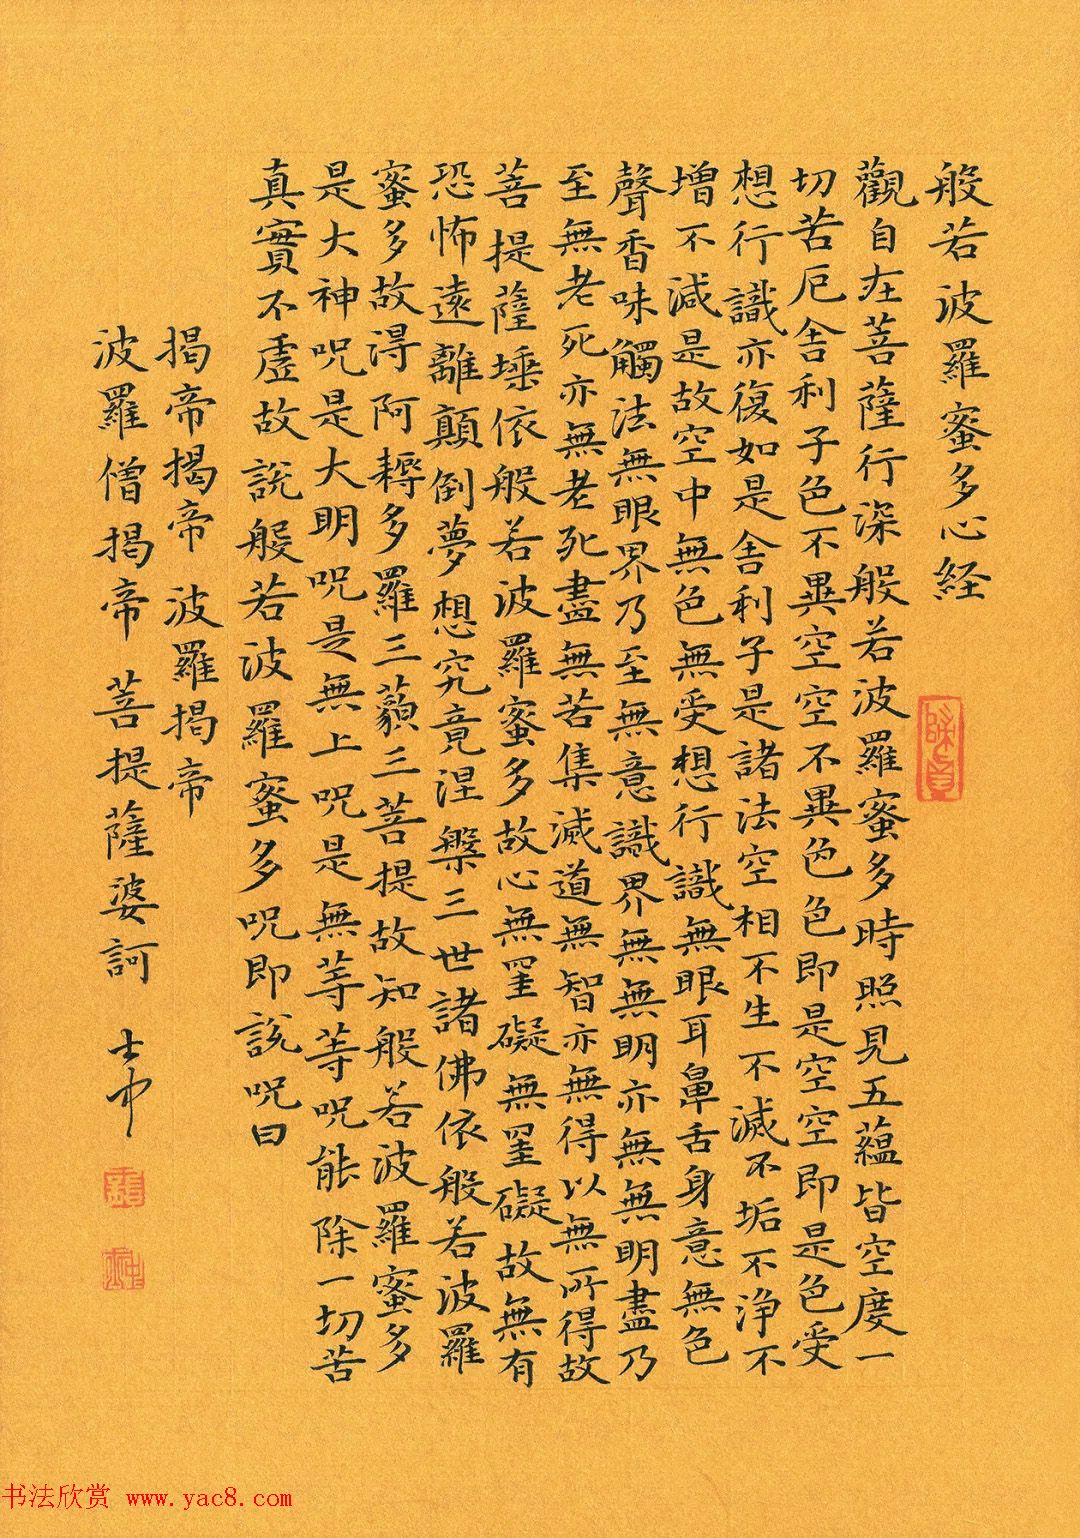 般若波羅蜜多心経
觀自在菩薩行深般若波羅蜜多時照見五蘊皆空度一
切苦厄舍利子色不異空空不異色色即是空空即是色受
想行識亦復如是舍利子是諸法空相不生不滅不垢不淨不
增不減是故空中無色無受想行識無眼耳鼻舌身意無色
聲香味觸法無眼界乃至無意識界無無明亦無無明盡乃
至無老死亦無老死盡無苦集滅道無智亦無得以無所得故
菩提薩埵依般若波羅蜜多故心無罣礙無罣礙故無有
恐怖遠離顛倒夢想究竟涅槃三世諸佛依般若波羅
蜜多故得阿耨多羅三藐三菩提故知般若波羅蜜多
是大神呪是大明呪是無上呪是無等等呪能除一切苦
真實不虛故說般若波羅蜜多呪即說呪曰
揭帝揭帝 波羅揭帝
波羅僧揭帝 菩提薩婆訶 士中
书法欣赏 www.yac8.com